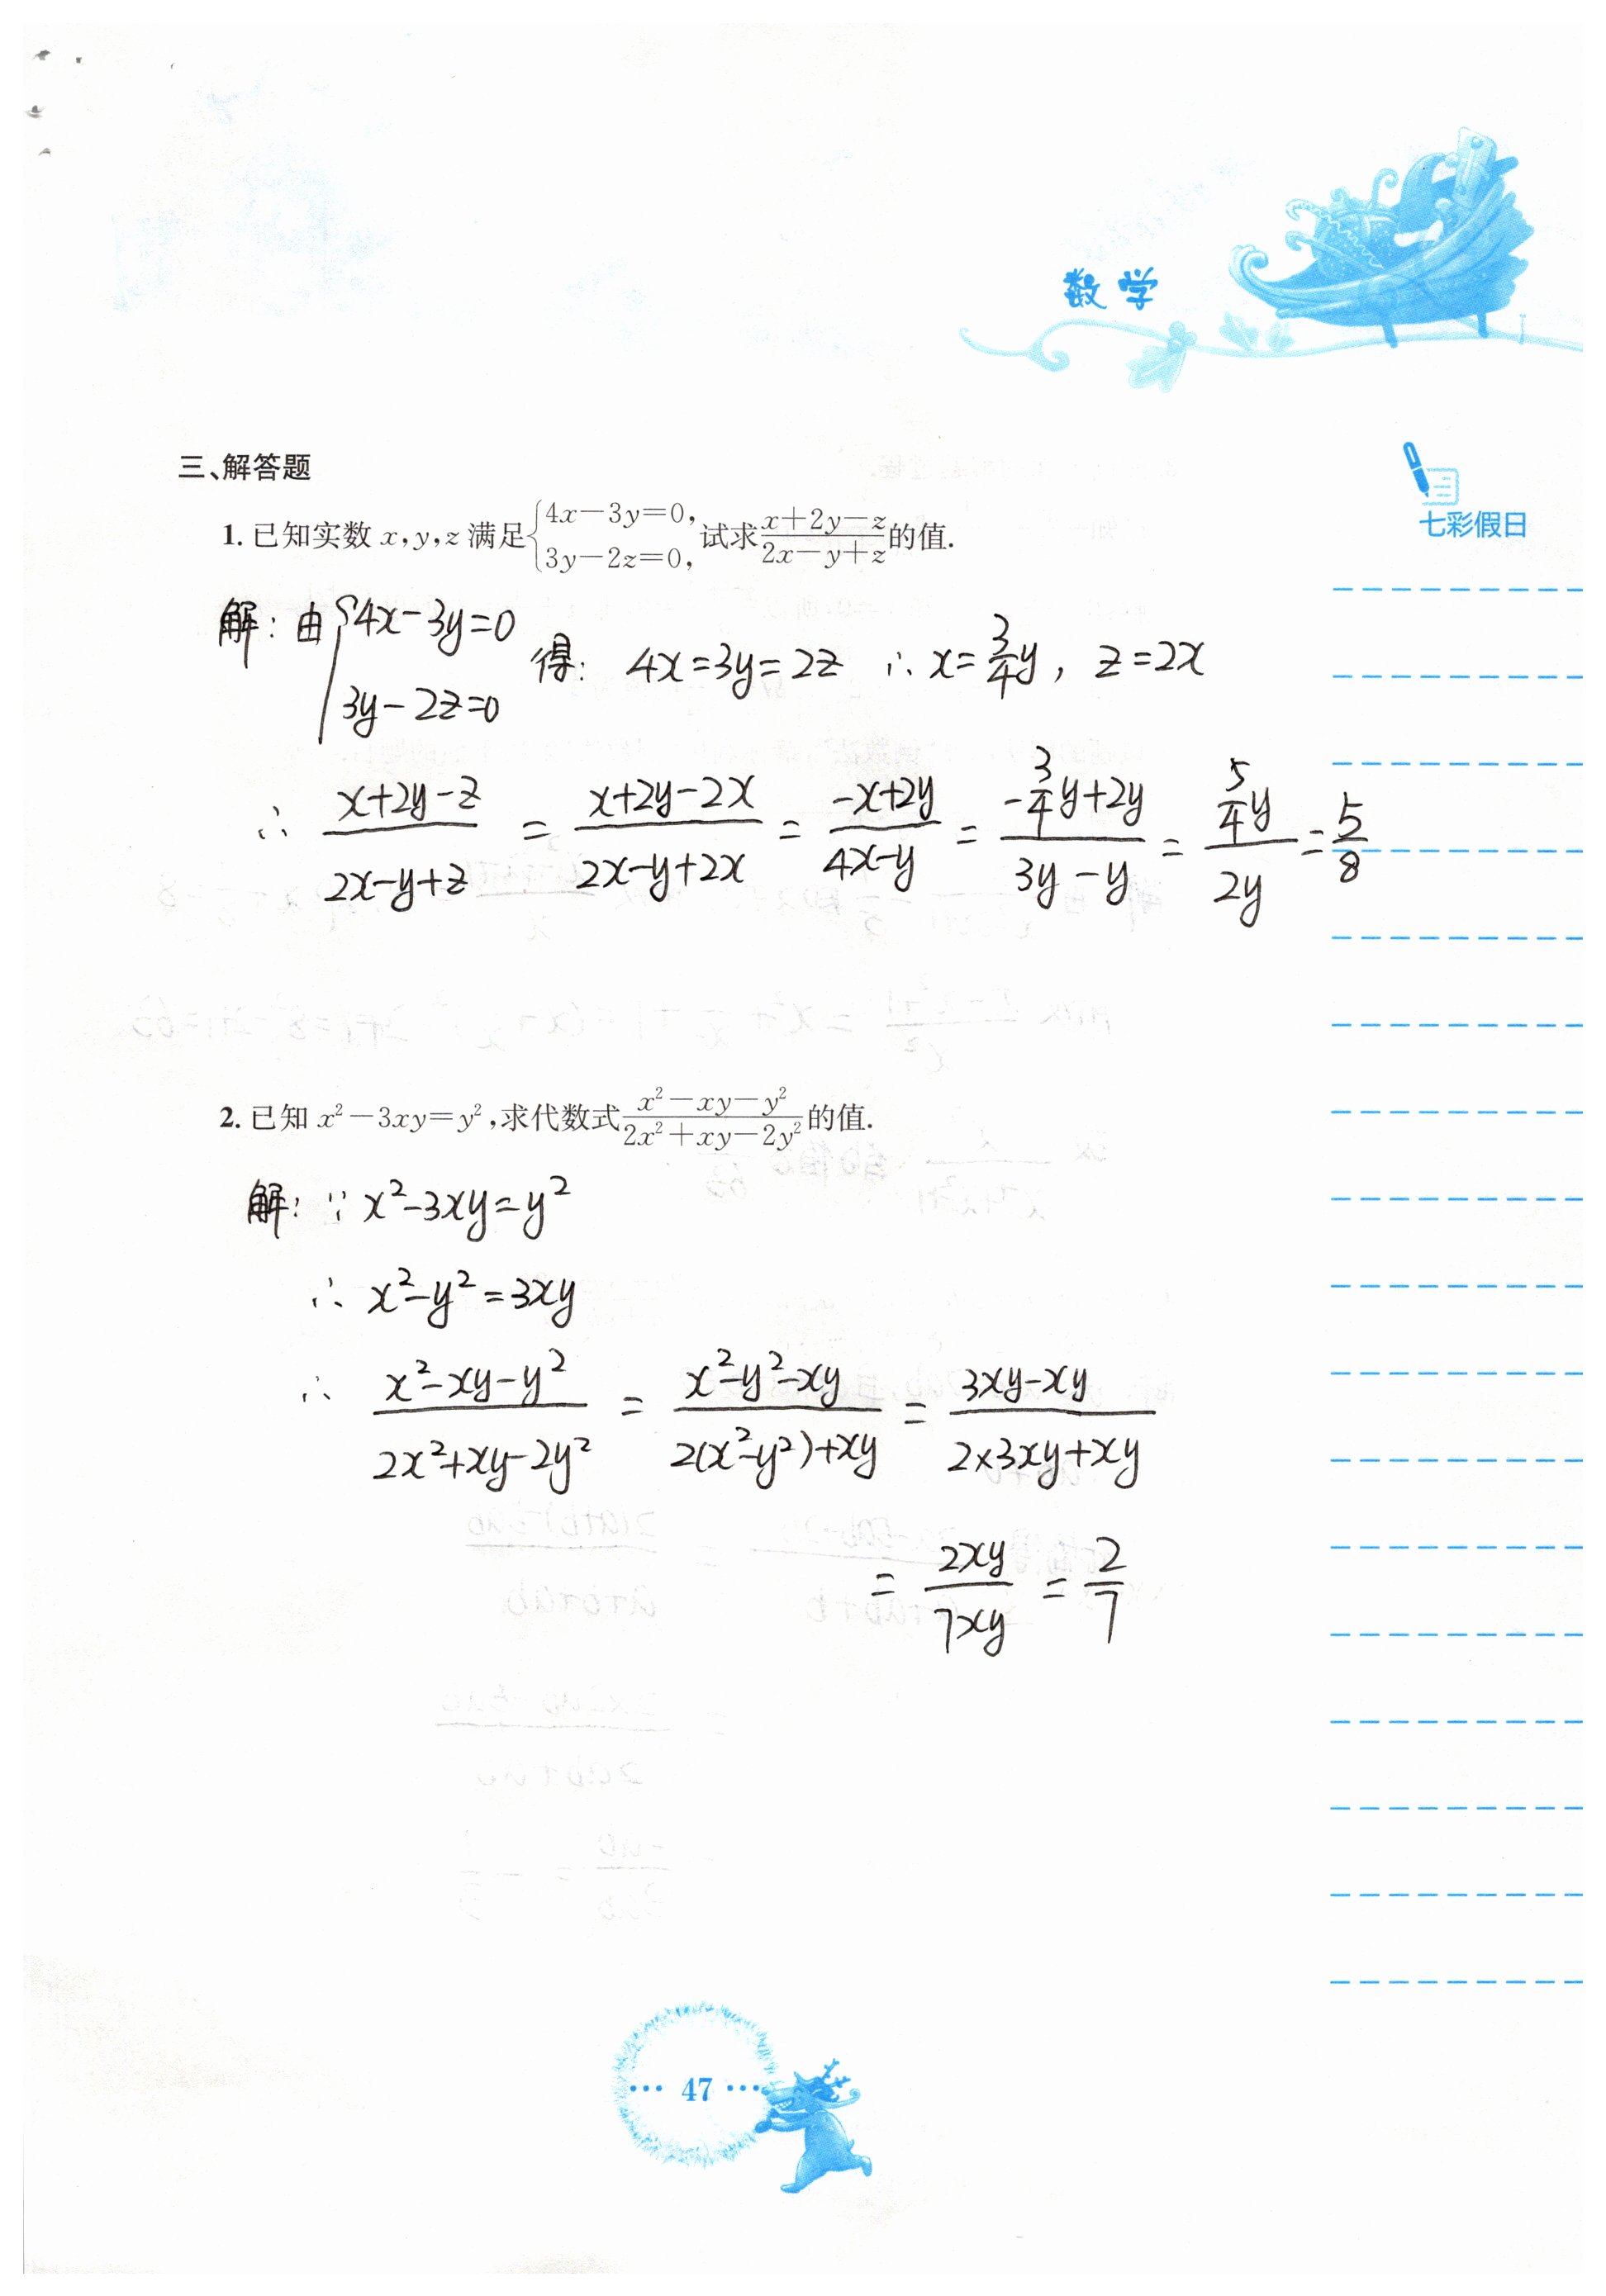 数学
三、解答题
七彩假日
1. 已知实数 x,y,z 满足{4x-3y=0, 3y-2z=0, 试求(x+2y-z)/(2x-y+z)的值.
解: 由{4x-3y=0 3y-2z=0 得: 4x=3y=2z ∴ x=3/4y, z=2x
∴ (x+2y-z)/(2x-y+z) = (x+2y-2x)/(2x-y+2x) = (-x+2y)/(4x-y) = (-3/4y+2y)/(3y-y) = (5/4y)/(2y) = 5/8
2. 已知 x²-3xy=y²,求代数式(x²-xy-y²)/(2x²+xy-2y²)的值.
解: ∵ x²-3xy=y²
∴ x²-y²=3xy
∴ (x²-xy-y²)/(2x²+xy-2y²) = (x²-y²-xy)/(2(x²-y²)+xy) = (3xy-xy)/(2×3xy+xy)
= 2xy/7xy = 2/7
··· 47 ···